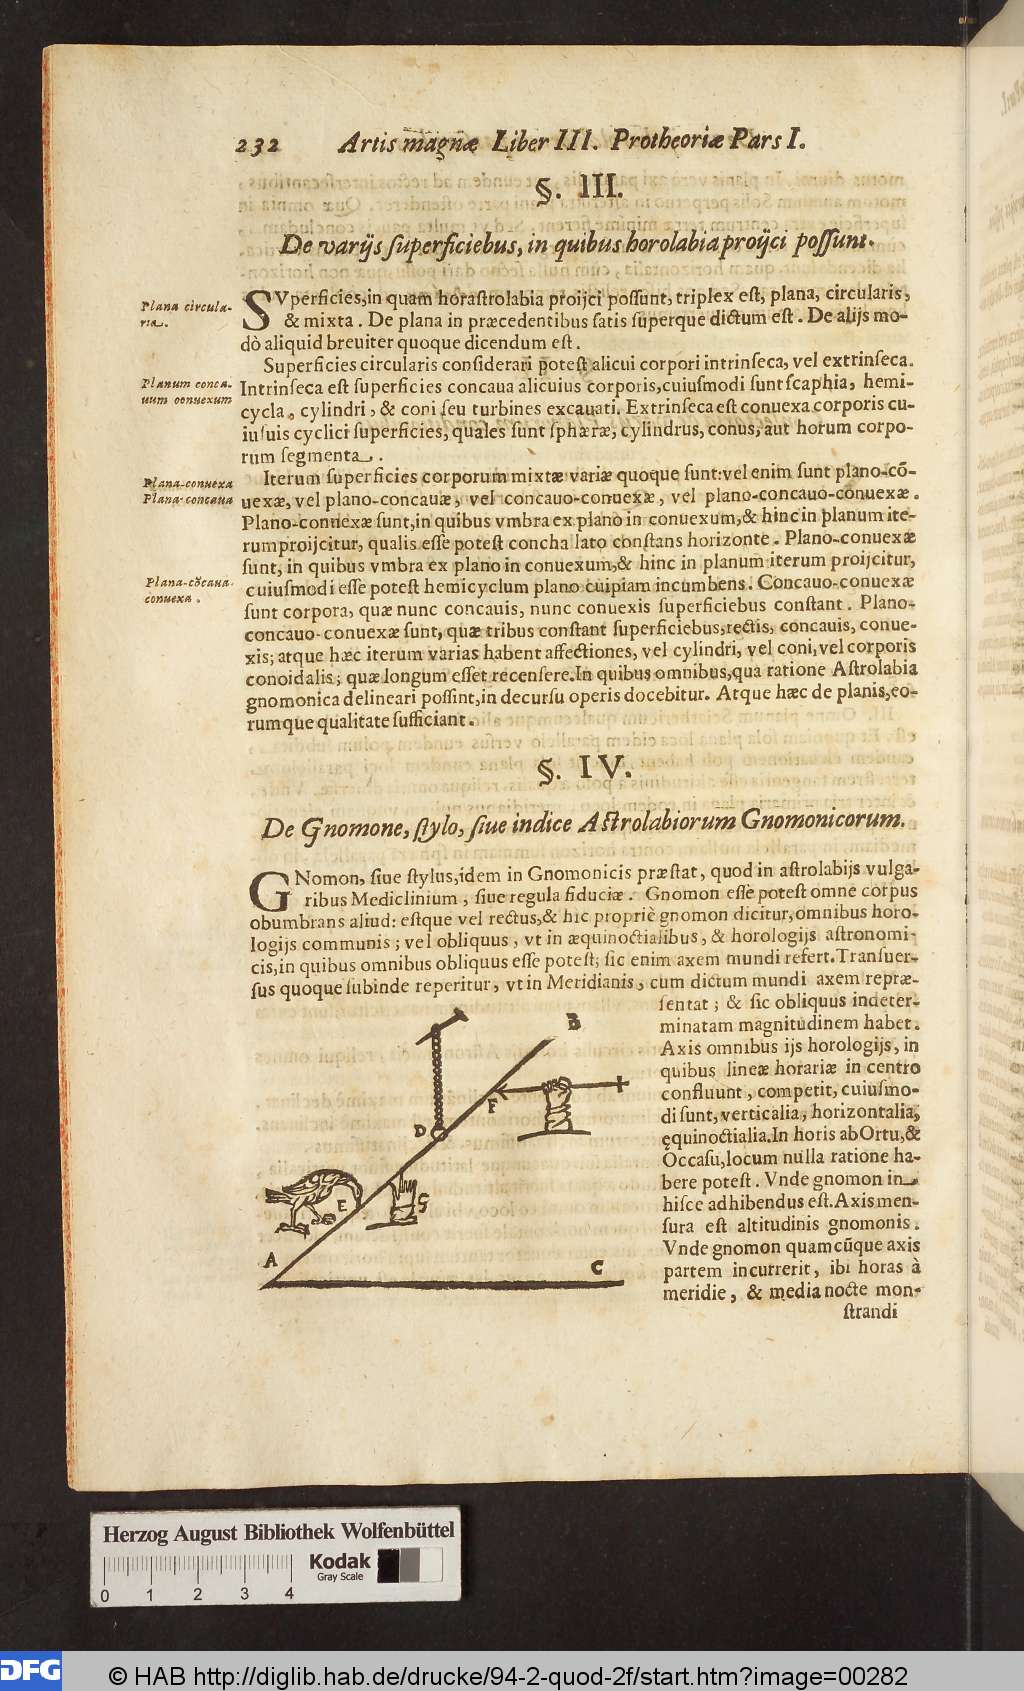 232 Artis magnæ Liber III. Protheoriæ Pars I.
§. III.
De varijs superficiebus, in quibus horolabia proijci possunt.
Plana circula-
ria.
SVperficies,in quam horastrolabia proijci possunt, triplex est, plana, circularis,
& mixta. De plana in præcedentibus satis superque dictum est. De alijs mo-
dò aliquid breuiter quoque dicendum est.
Superficies circularis considerari potest alicui corpori intrinseca, vel extrinseca.
Planum conca-
uum conuexum
Intrinseca est superficies concaua alicuius corporis,cuiusmodi sunt scaphia, hemi-
cycla, cylindri, & coni seu turbines excauati. Extrinseca est conuexa corporis cu-
iusuis cyclici superficies, quales sunt sphæræ, cylindrus, conus, aut horum corpo-
rum segmenta.
Plana-conuexa
Plana-concaua
Iterum superficies corporum mixtæ variæ quoque sunt: vel enim sunt plano-cō-
uexæ, vel plano-concauæ, vel concauo-conuexæ, vel plano-concauo-conuexæ.
Plano-conuexæ sunt,in quibus vmbra ex plano in conuexum,& hinc in planum ite-
rum proijcitur, qualis esse potest concha lato constans horizonte. Plano-conuexæ
sunt, in quibus vmbra ex plano in conuexum,& hinc in planum iterum proijcitur,
Plana-cōcaua-
conuexa.
cuiusmodi esse potest hemicyclum plano cuipiam incumbens. Concauo-conuexæ
sunt corpora, quæ nunc concauis, nunc conuexis superficiebus constant. Plano-
concauo-conuexæ sunt, quæ tribus constant superficiebus,rectis, concauis, conue-
xis; atque hæc iterum varias habent affectiones, vel cylindri, vel coni, vel corporis
conoidalis; quæ longum esset recensere. In quibus omnibus,qua ratione Astrolabia
gnomonica delineari possint,in decursu operis docebitur. Atque hæc de planis,eo-
rumque qualitate sufficiant.
§. IV.
De Gnomone, stylo, siue indice Astrolabiorum Gnomonicorum.
GNomon, siue stylus,idem in Gnomonicis præstat, quod in astrolabijs vulga-
ribus Mediclinium, siue regula fiduciæ. Gnomon esse potest omne corpus
obumbrans aliud: estque vel rectus,& hic propriè gnomon dicitur,omnibus horo-
logijs communis; vel obliquus, vt in æquinoctialibus, & horologijs astronomi-
cis,in quibus omnibus obliquus esse potest; sic enim axem mundi refert. Transuer-
sus quoque subinde reperitur, vt in Meridianis, cum dictum mundi axem repræ-
sentat; & sic obliquus indeter-
minatam magnitudinem habet.
Axis omnibus ijs horologijs, in
quibus lineæ horariæ in centro
confluunt, competit, cuiusmo-
di sunt, verticalia, horizontalia,
ęquinoctialia. In horis ab Ortu,&
Occasu,locum nulla ratione ha-
bere potest. Vnde gnomon in
hisce adhibendus est. Axis men-
sura est altitudinis gnomonis.
Vnde gnomon quamcūque axis
partem incurrerit, ibi horas à
meridie, & media nocte mon-
strandi
B
F
D
E
G
A
C
Herzog August Bibliothek Wolfenbüttel
0 1 2 3 4
Kodak
Gray Scale
DFG
© HAB http://diglib.hab.de/drucke/94-2-quod-2f/start.htm?image=00282